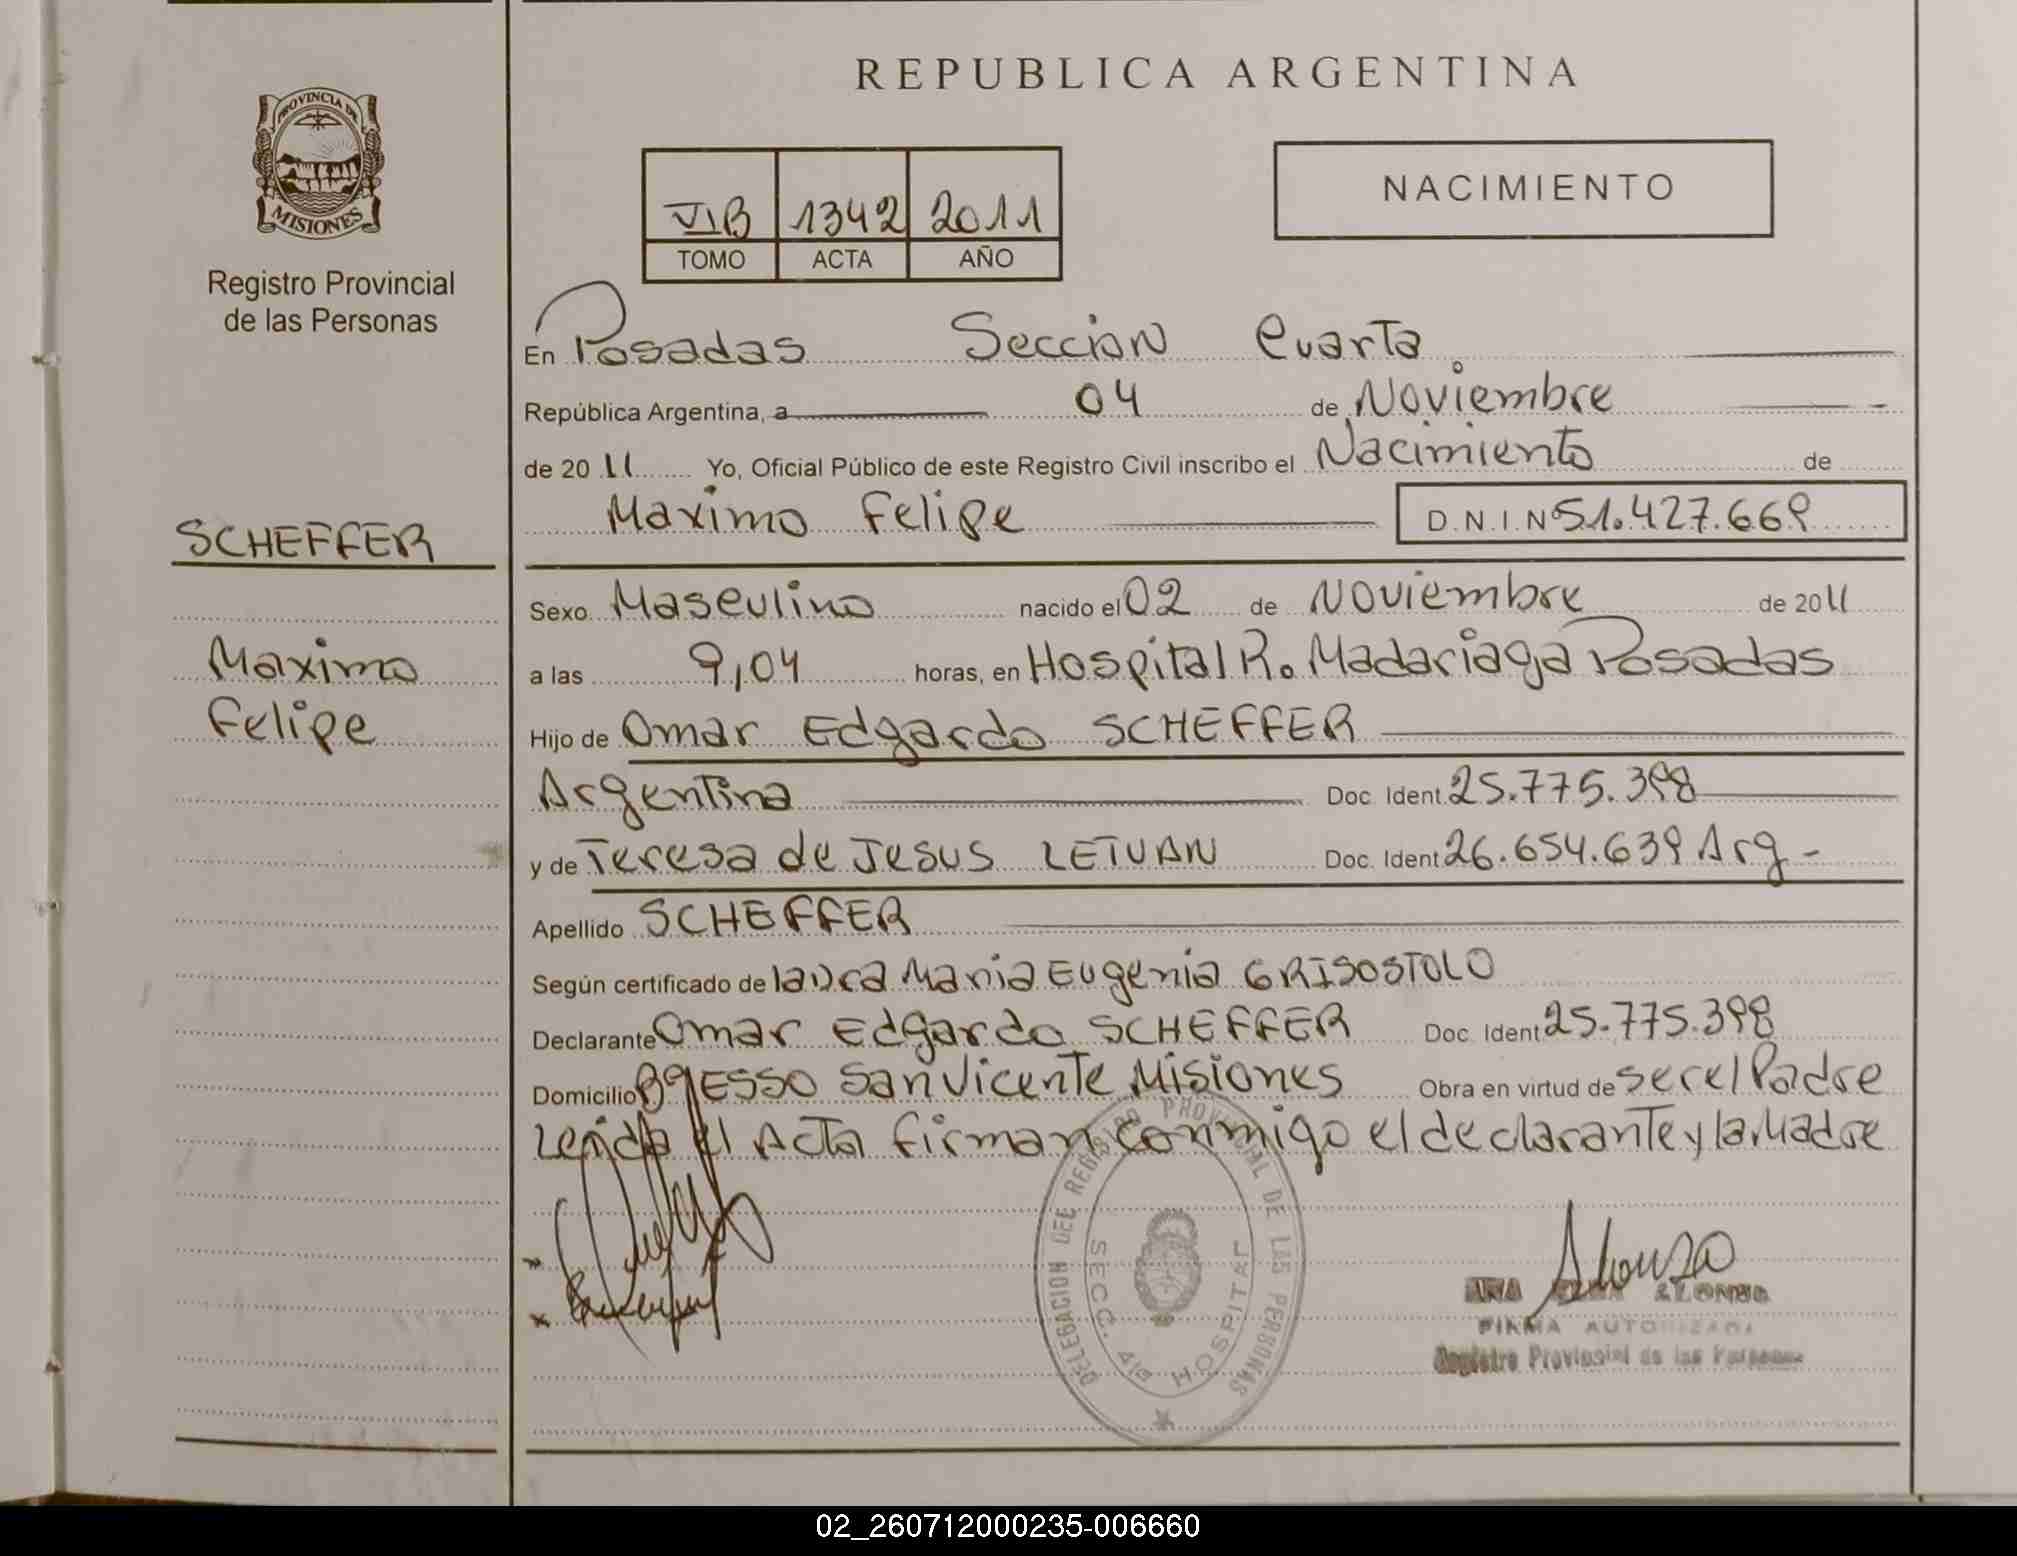 REPUBLICA ARGENTINA
PROVINCIA DE
MISIONES
Registro Provincial
de las Personas
VIB 1342 2011
TOMO ACTA AÑO
NACIMIENTO
En Posadas Seccion Cuarta
República Argentina, a 04 de Noviembre
de 2011 Yo, Oficial Público de este Registro Civil inscribo el Nacimiento de
Maximo Felipe D.N.I.Nº 51.427.669
SCHEFFER
Maximo
Felipe
Sexo Masculino nacido el 02 de Noviembre de 2011
a las 9,04 horas, en Hospital R. Madariaga Posadas
Hijo de Omar Edgardo SCHEFFER
Argentina Doc. Ident. 25.775.398
y de Teresa de Jesus LETUAN Doc. Ident. 26.654.639 Arg -
Apellido SCHEFFER
Según certificado de laura Maria Eugenia GRISOSTOLO
Declarante Omar Edgardo SCHEFFER Doc. Ident. 25.775.398
Domicilio San Vicente Misiones Obra en virtud de ser el Padre
Leida el Acta firman conmigo el declarante y la Madre
DELEGACION DEL REGISTRO PROVINCIAL DE LAS PERSONAS
SECC. 4ta HOSPITAL
Alonso
ANA ALONSO
FIRMA AUTORIZADA
Registro Provincial de las Personas
02_260712000235-006660